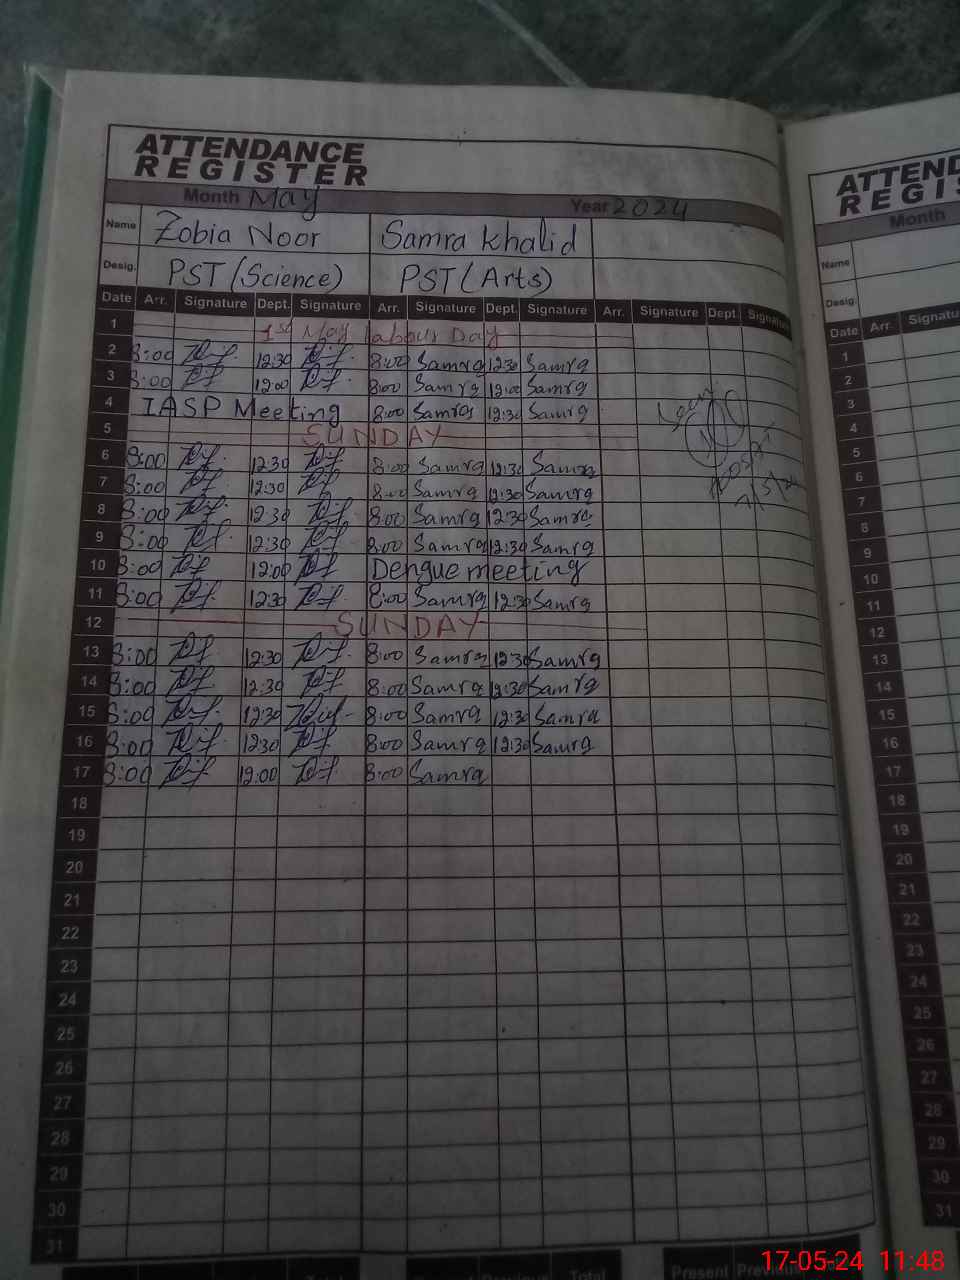 ATTENDANCE
REGISTER
Month May Year 2024
Name Zobia Noor Samra Khalid
Desig. PST (Science) PST (Arts)
Date Arr. Signature Dept. Signature Arr. Signature Dept. Signature Arr. Signature Dept. Signature
1 1st May labour Day
2 8:00 12:30 8:00 Samra 12:30 Samra
3 8:00 12:00 8:00 Samra 12:00 Samra
4 IASP Meeting 8:00 Samra 12:30 Samra
5 SUNDAY
6 8:00 12:30 8:00 Samra 12:30 Samra
7 8:00 12:30 8:00 Samra 12:30 Samra
8 8:00 12:30 8:00 Samra 12:30 Samra
9 8:00 12:30 8:00 Samra 12:30 Samra
10 8:00 12:00 Dengue meeting
11 8:00 12:30 8:00 Samra 12:30 Samra
12 SUNDAY
13 8:00 12:30 8:00 Samra 12:30 Samra
14 8:00 12:30 8:00 Samra 12:30 Samra
15 8:00 12:30 8:00 Samra 12:30 Samra
16 8:00 12:30 8:00 Samra 12:30 Samra
17 8:00 12:00 8:00 Samra
18
19
20
21
22
23
24
25
26
27
28
29
30
31
Total Previous Total Present Previous
ATTENDANCE
REGIS
Month
Name
Desig.
Date Arr. Signatu
1
2
3
4
5
6
7
8
9
10
11
12
13
14
15
16
17
18
19
20
21
22
23
24
25
26
27
28
29
30
31
17-05-24 11:48